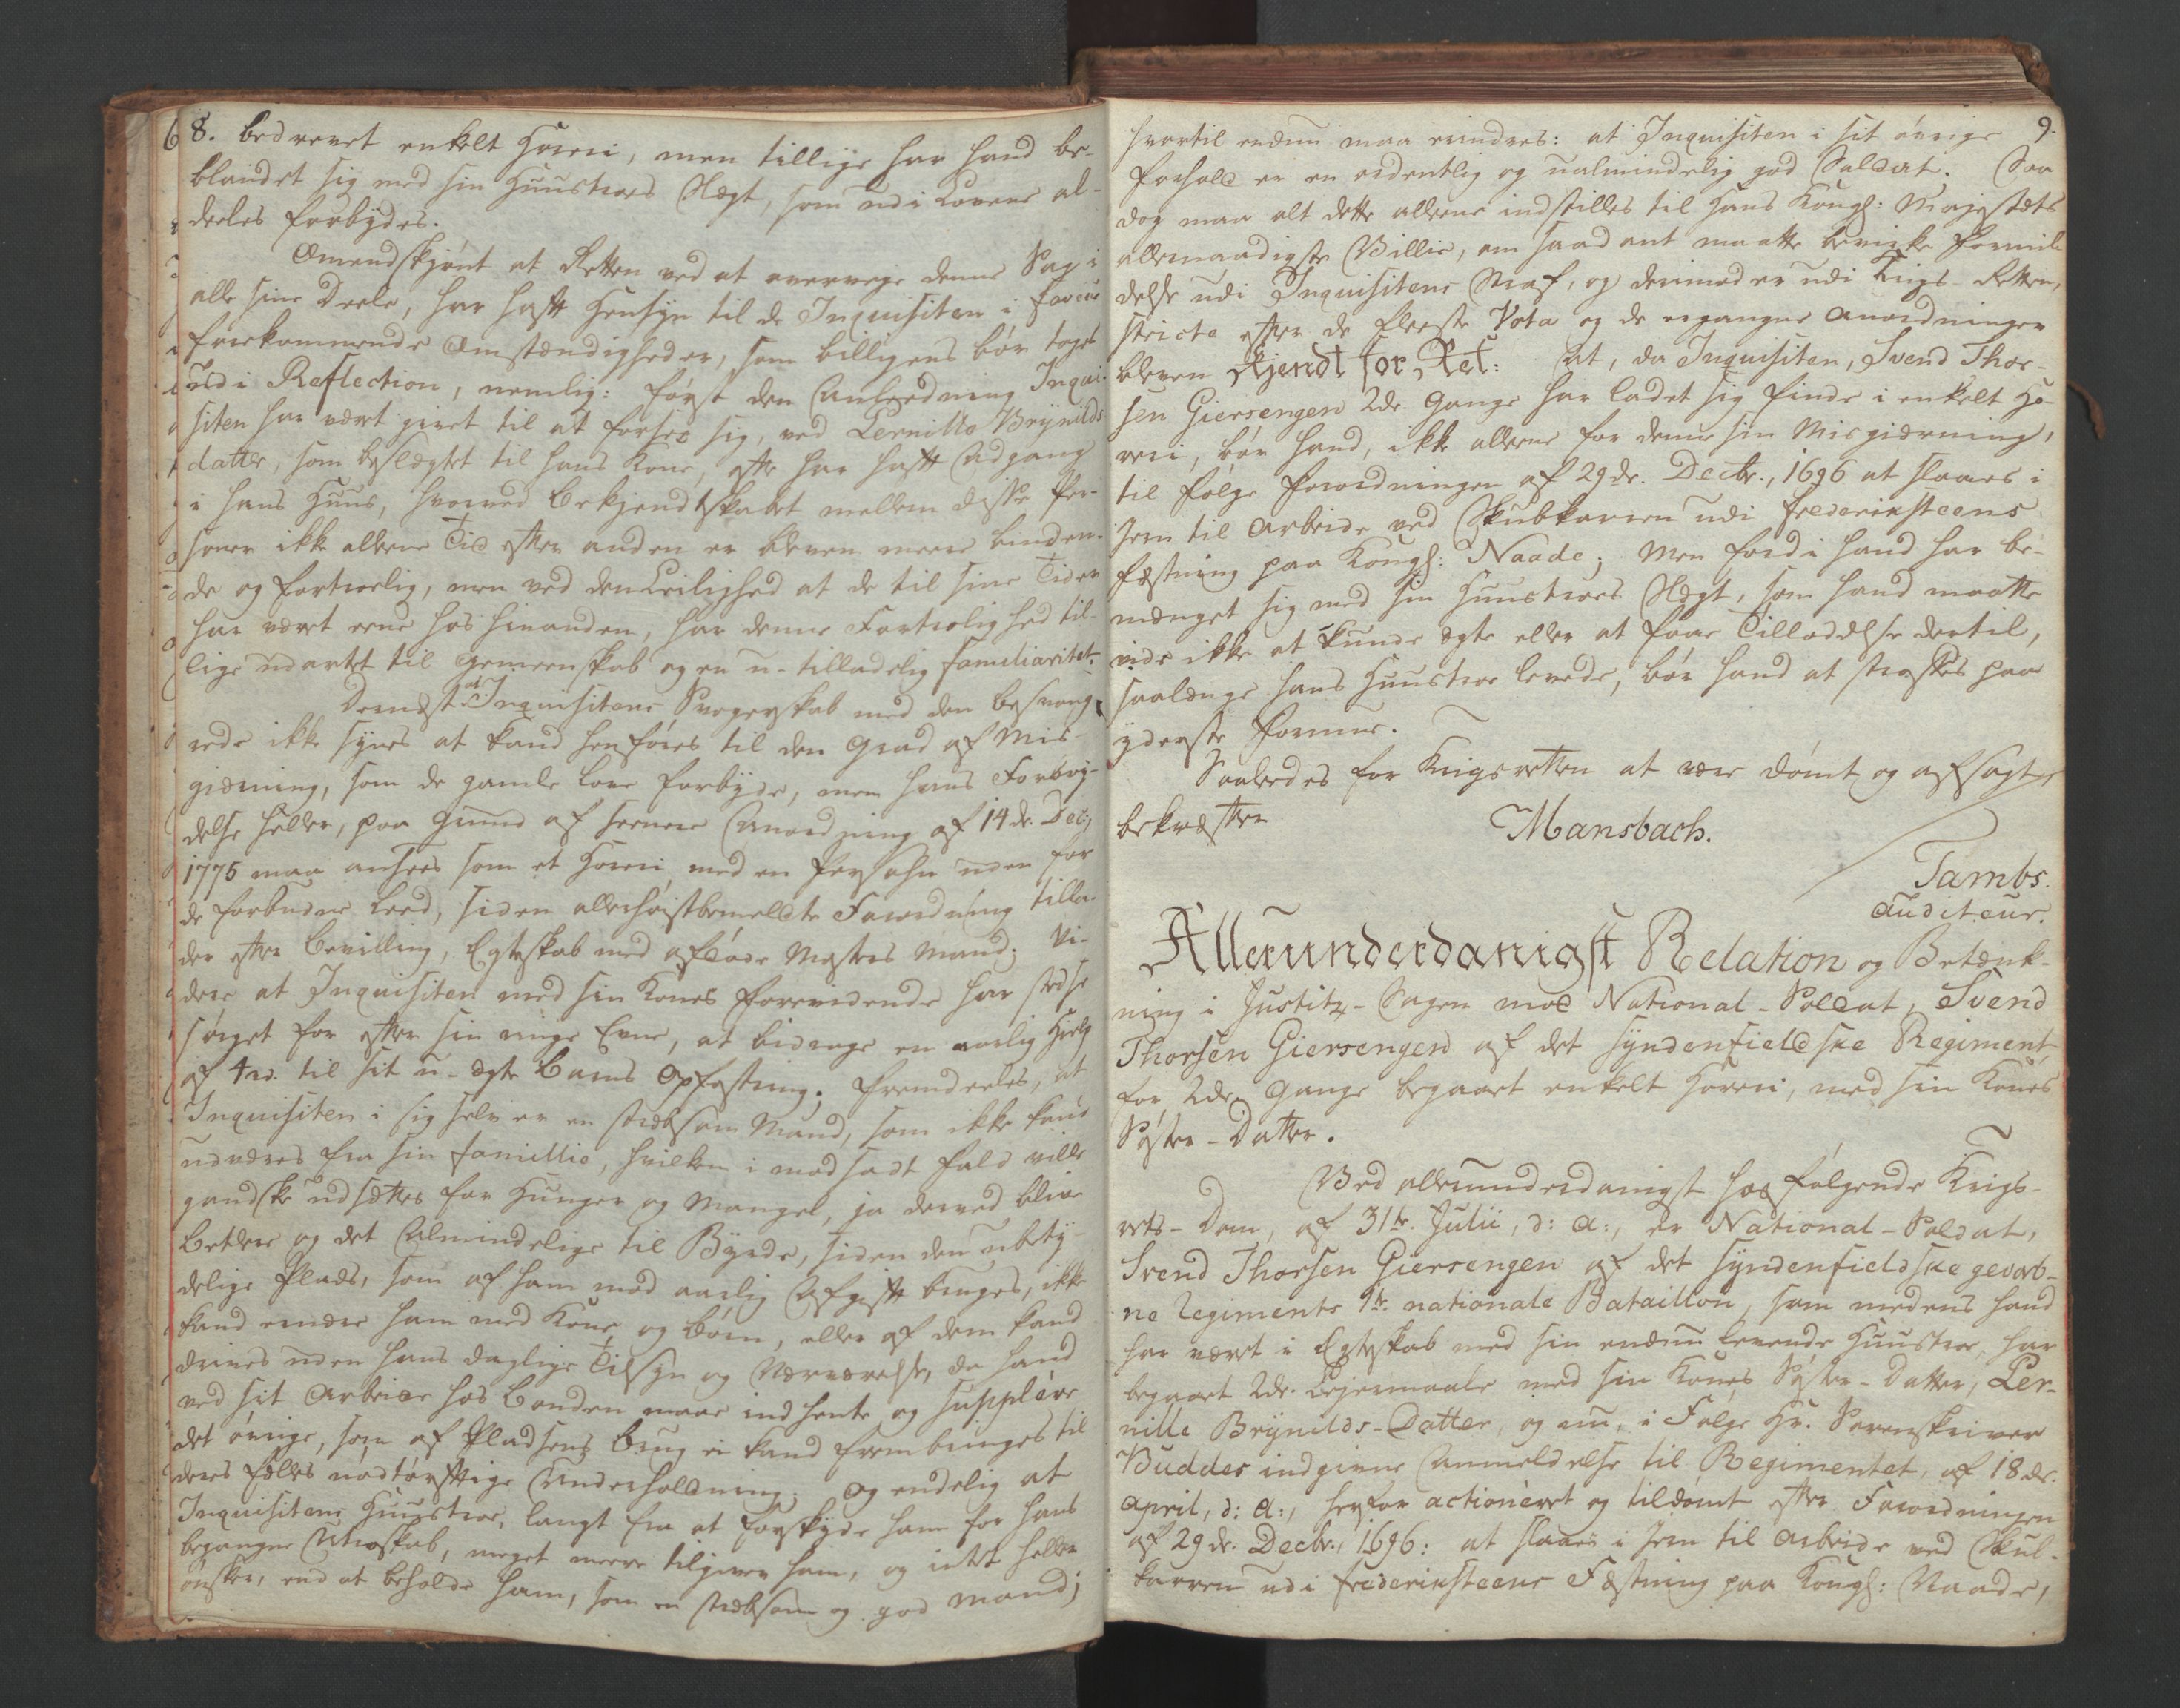 8. bedrevet enkelt Horeri, men tillige har hand be-
blandet sig med sin Huustroes Slægt, som udi Lovene al-
deeles forbydes.
Omendskjønt at Retten ved at overveye denne Sag i
alle sine Deele, har hafft Hensyn til de Inquisiten i faveur
forekommende Omstændigheder, som billigens bør tages
udi Reflection, nemlig: først den Anledning Inqui-
siten har vært givet til at forsee sig, ved Pernille Brynilds
datter, som beslægtet til hans Kone, ofte har hafft Adgang
i hans Huus, hvorved bekjendtskabet mellem disse Per-
soner ikke alleene Tid efter anden er bleven meere binden-
de og fortroelig, men ved den Leilighed at de til sine Tider
har været eene hos hinanden, har denne Fortrolighed til-
lige udartet til Gemeenskab og en u-tilladelig familiaritet.
Dernæst at Inquisitens Svogerskab med den besvang-
rede ikke synes at kand henføres til den Grad af Mis-
gierning, som de gamle Love forbyde, men hans Forbry-
delse heller, paa Grund af seenere Anordning af 14de. Dec:
1775 maa ansees som et Horeri med en Persohn uden for
de forbudne Leed, siden allerhøistbemeldte Forordning tilla-
der efter Bevilling, Egteskab med afdøde Søsters Mand; Vi-
dere at Inquisiten med sin Kones Forevidende har stedse
sørget for efter sin ringe Evne, at bidrage en aarlig Hielp
af 4rd. til sit u-ægte Barns Opfostring; fremdeeles, at
Inquisiten i sig selv er en strebsom Mand, som ikke kand
undværes fra sin famillie, hvilken i modsadt fald ville
gandske udsættes for Hunger og Mangel, ja derved blive
Betlere og det Almindelige til Byrde, siden den ubety-
delige Plads, som af ham mod aarlig Afgifft bruges, ikke
kand ernære ham med Kone og Børn, eller af dem kand
drives uden hans daglige Tilsyn og Nærværelse, da hand
ved sit Arbeide hos Bonden maae indhente og supplere
det øvrige, som af Pladsens Brug ei kand frembringes til
deres fælles nødtørfftige Underholdning; og endelig at
Inquisitens Huustroe, langt fra at forskyde ham for hans
begangne Utroskab, meget meere tilgiver ham, og intet heller
ønsker, end at beholde ham, som en strebsom og god Mand;
9.
hvortil endnu maa erindres: at Inquisiten i sit øvrige
Forhold er en ordentlig og ualmindelig god Soldat. Saa
dog maa alt dette alleene indstilles til Hans Kongl: Majestæts
allernaadigste Villie, om saadant maatte bevirke Formil-
delse udi Inquisitens Straf, og derimod er udi Krigs-Retten,
stricte efter de fleeste Vota og de ergangne Anordninger
bleven Kjendt for Ret: At, da Inquisiten, Svend Thor-
sen Giersengen 2de. Gange har ladet sig finde i enkelt Ho-
reri, bør hand, ikke alleene for denne sin Misgierning,
til følge Forordningen af 29de. Decbr., 1696 at slaaes i
Jern til Arbeide ved Skubkarren udi Frederiksteens
fæstning paa Kongl: Naade; Men fordi hand har be-
mænget sig med sin Huustroes Slægt, som hand maatte
vide ikke at kunde ægte eller at faae Tilladelse dertil,
saalænge hans Huustroe levede, bør hand at straffes paa
yderste Formue.
Saaledes for Krigsretten at være dømt og afsagt,
bekræfter
Mansbach.
Tambs.
Auditeur.
Allerunderdanigst Relation og Betænk-
ning i Justitz-Sagen mod National-Soldat, Svend
Thorsen Giersengen af det syndenfieldske Regiment
for 2de. Gange begaaet enkelt Horeri, med sin Kones
Søster-Datter.
Ved allerunderdanigst hosfølgende Krigs-
rets-Dom, af 31te. Julii, d: A:, er National-Soldat,
Svend Thorsen Giersengen af det syndenfieldske gevorb-
ne Regiments 1te. nationale Bataillon, som medens hand
har været i Egteskab med sin endnu levende Huustroe, har
begaaet 2de. Lejermaale med sin Kones Søster-Datter, Per-
nille Brynilds-Datter, og nu, i Følge Hr. Sorenskriver
Buddes indgivne Anmeldelse til Regimentet, af 18de.
April, d: A:, herfor actioneret og tildømt efter Forordningen
af 29de. Decbr., 1696: at slaaes i Jern til Arbeide ved Skub-
karren udi Frederiksteens Fæstning paa Kongl: Naade,